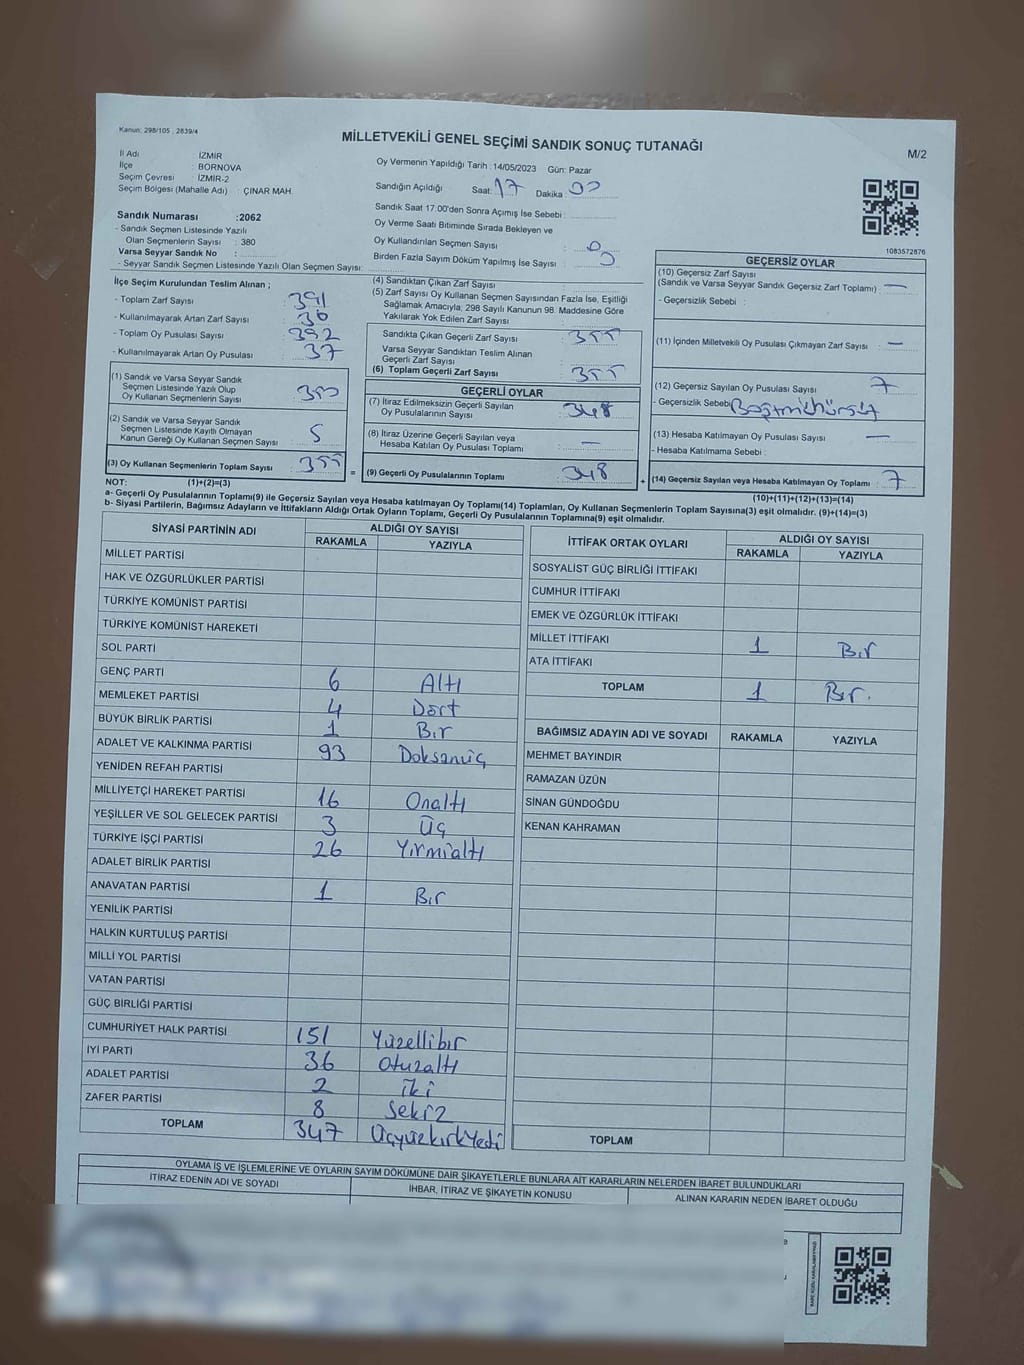 Kanun: 298/105 , 2839/4
MİLLETVEKİLİ GENEL SEÇİMİ SANDIK SONUÇ TUTANAĞI
M/2
İl Adı İZMİR
İlçe : BORNOVA
Seçim Çevresi : İZMİR-2
Seçim Bölgesi (Mahalle Adı) : ÇINAR MAH.
Oy Vermenin Yapıldığı Tarih : 14/05/2023 Gün: Pazar
Sandığın Açıldığı Saat: 17 Dakika : 00
Sandık Saat 17:00'den Sonra Açımış İse Sebebi :
Oy Verme Saati Bitiminde Sırada Bekleyen ve
Oy Kullandırılan Seçmen Sayısı : 0
Birden Fazla Sayım Döküm Yapılmış İse Sayısı : 0
Sandık Numarası :2062
- Sandık Seçmen Listesinde Yazılı
Olan Seçmenlerin Sayısı : 380
Varsa Seyyar Sandık No :
- Seyyar Sandık Seçmen Listesinde Yazılı Olan Seçmen Sayısı:
İlçe Seçim Kurulundan Teslim Alınan ;
- Toplam Zarf Sayısı : 391
- Kullanılmayarak Artan Zarf Sayısı : 36
- Toplam Oy Pusulası Sayısı : 392
- Kullanılmayarak Artan Oy Pusulası : 37
(1) Sandık ve Varsa Seyyar Sandık
Seçmen Listesinde Yazılı Olup
Oy Kullanan Seçmenlerin Sayısı : 350
(2) Sandık ve Varsa Seyyar Sandık
Seçmen Listesinde Kayıtlı Olmayan
Kanun Gereği Oy Kullanan Seçmen Sayısı : 5
(3) Oy Kullanan Seçmenlerin Toplam Sayısı : 355
(4) Sandıktan Çıkan Zarf Sayısı :
(5) Zarf Sayısı Oy Kullanan Seçmen Sayısından Fazla İse, Eşitliği
Sağlamak Amacıyla, 298 Sayılı Kanunun 98. Maddesine Göre
Yakılarak Yok Edilen Zarf Sayısı :
Sandıkta Çıkan Geçerli Zarf Sayısı : 355
Varsa Seyyar Sandıktan Teslim Alınan
Geçerli Zarf Sayısı :
(6) Toplam Geçerli Zarf Sayısı : 355
GEÇERLİ OYLAR
(7) İtiraz Edilmeksizin Geçerli Sayılan
Oy Pusulalarının Sayısı : 348
(8) İtiraz Üzerine Geçerli Sayılan veya
Hesaba Katılan Oy Pusulası Toplamı : —
= (9) Geçerli Oy Pusulalarının Toplamı : 348 +
1083572876
GEÇERSİZ OYLAR
(10) Geçersiz Zarf Sayısı
(Sandık ve Varsa Seyyar Sandık Geçersiz Zarf Toplamı) : —
- Geçersizlik Sebebi :
(11) İçinden Milletvekili Oy Pusulası Çıkmayan Zarf Sayısı : —
(12) Geçersiz Sayılan Oy Pusulası Sayısı : 7
- Geçersizlik Sebebi
(13) Hesaba Katılmayan Oy Pusulası Sayısı : —
- Hesaba Katılmama Sebebi :
(14) Geçersiz Sayılan veya Hesaba Katılmayan Oy Toplamı : 7
(10)+(11)+(12)+(13)=(14)
NOT: (1)+(2)=(3)
a- Geçerli Oy Pusulalarının Toplamı(9) ile Geçersiz Sayılan veya Hesaba katılmayan Oy Toplamı(14) Toplamları, Oy Kullanan Seçmenlerin Toplam Sayısına(3) eşit olmalıdır. (9)+(14)=(3)
b- Siyasi Partilerin, Bağımsız Adayların ve İttifakların Aldığı Ortak Oyların Toplamı, Geçerli Oy Pusulalarının Toplamına(9) eşit olmalıdır.
SİYASİ PARTİNİN ADI ALDIĞI OY SAYISI
RAKAMLA YAZIYLA
MİLLET PARTİSİ
HAK VE ÖZGÜRLÜKLER PARTİSİ
TÜRKİYE KOMÜNİST PARTİSİ
TÜRKİYE KOMÜNİST HAREKETİ
SOL PARTİ
GENÇ PARTİ 6 Altı
MEMLEKET PARTİSİ 4 Dört
BÜYÜK BİRLİK PARTİSİ 1 Bir
ADALET VE KALKINMA PARTİSİ 93 Doksanüç
YENİDEN REFAH PARTİSİ
MİLLİYETÇİ HAREKET PARTİSİ 16 Onaltı
YEŞİLLER VE SOL GELECEK PARTİSİ 3 Üç
TÜRKİYE İŞÇİ PARTİSİ 26 Yirmialtı
ADALET BİRLİK PARTİSİ
ANAVATAN PARTİSİ 1 Bir
YENİLİK PARTİSİ
HALKIN KURTULUŞ PARTİSİ
MİLLİ YOL PARTİSİ
VATAN PARTİSİ
GÜÇ BİRLİĞİ PARTİSİ
CUMHURİYET HALK PARTİSİ 151 Yüzellibir
İYİ PARTİ 36 Otuzaltı
ADALET PARTİSİ 2 iki
ZAFER PARTİSİ 8 Sekiz
TOPLAM 347 ÜçyüzkırkYedi
İTTİFAK ORTAK OYLARI ALDIĞI OY SAYISI
RAKAMLA YAZIYLA
SOSYALİST GÜÇ BİRLİĞİ İTTİFAKI
CUMHUR İTTİFAKI
EMEK VE ÖZGÜRLÜK İTTİFAKI
MİLLET İTTİFAKI 1 Bir
ATA İTTİFAKI
TOPLAM 1 Bir.
BAĞIMSIZ ADAYIN ADI VE SOYADI RAKAMLA YAZIYLA
MEHMET BAYINDIR
RAMAZAN ÜZÜN
SİNAN GÜNDOĞDU
KENAN KAHRAMAN
TOPLAM
OYLAMA İŞ VE İŞLEMLERİNE VE OYLARIN SAYIM DÖKÜMÜNE DAİR ŞİKAYETLERLE BUNLARA AİT KARARLARIN NELERDEN İBARET BULUNDUKLARI
İTİRAZ EDENİN ADI VE SOYADI İHBAR, İTİRAZ VE ŞİKAYETİN KONUSU ALINAN KARARIN NEDEN İBARET OLDUĞU